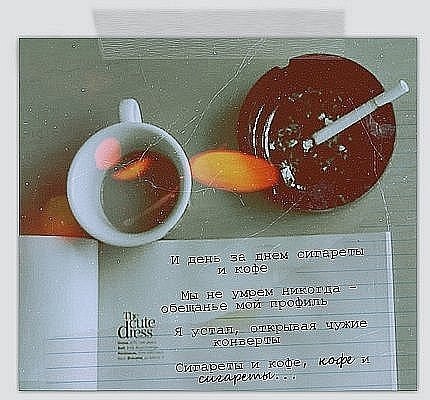 И день за днем сигареты
и кофе
Мы не умрем никогда –
обещанье мой профиль
Я устал, открывая чужие
конверты
Сигареты и кофе, кофе и
сигареты...
The
cute
dress